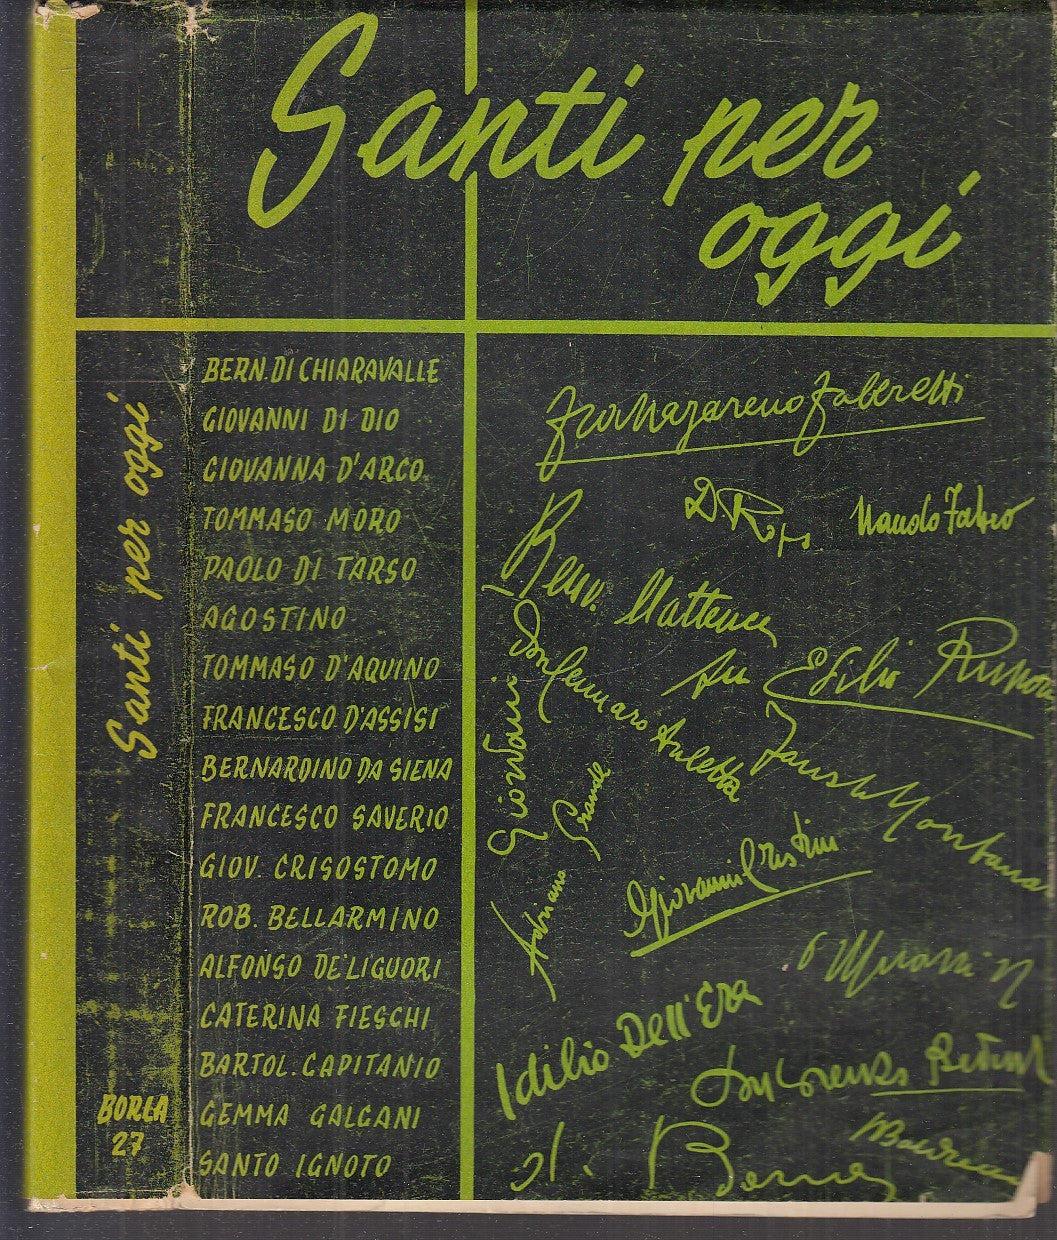 Santi per
oggi
Santi per oggi
BORLA
27
BERN. DI CHIARAVALLE
GIOVANNI DI DIO
GIOVANNA D'ARCO
TOMMASO MORO
PAOLO DI TARSO
AGOSTINO
TOMMASO D'AQUINO
FRANCESCO D'ASSISI
BERNARDINO DA SIENA
FRANCESCO SAVERIO
GIOV. CRISOSTOMO
ROB. BELLARMINO
ALFONSO DE'LIGUORI
CATERINA FIESCHI
BARTOL. CAPITANIO
GEMMA GALGANI
SANTO IGNOTO
Fra Nazareno Fabbretti
Nando Fabro
Benv. Matteucci
Don Gennaro Auletta
Giordani
Fausto Montanari
Adriano Grande
Giovanni Cristini
Idilio Dell'Era